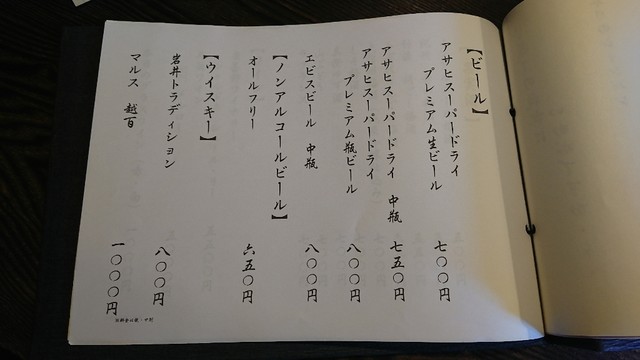 【ビール】
アサヒスーパードライ
プレミアム生ビール 七〇〇円
アサヒスーパードライ 中瓶 七五〇円
アサヒスーパードライ
プレミアム瓶ビール 八〇〇円
エビスビール 中瓶 八〇〇円
【ノンアルコールビール】
オールフリー 六五〇円
【ウイスキー】
岩井トラディション 八〇〇円
マルス 越百 一〇〇〇円